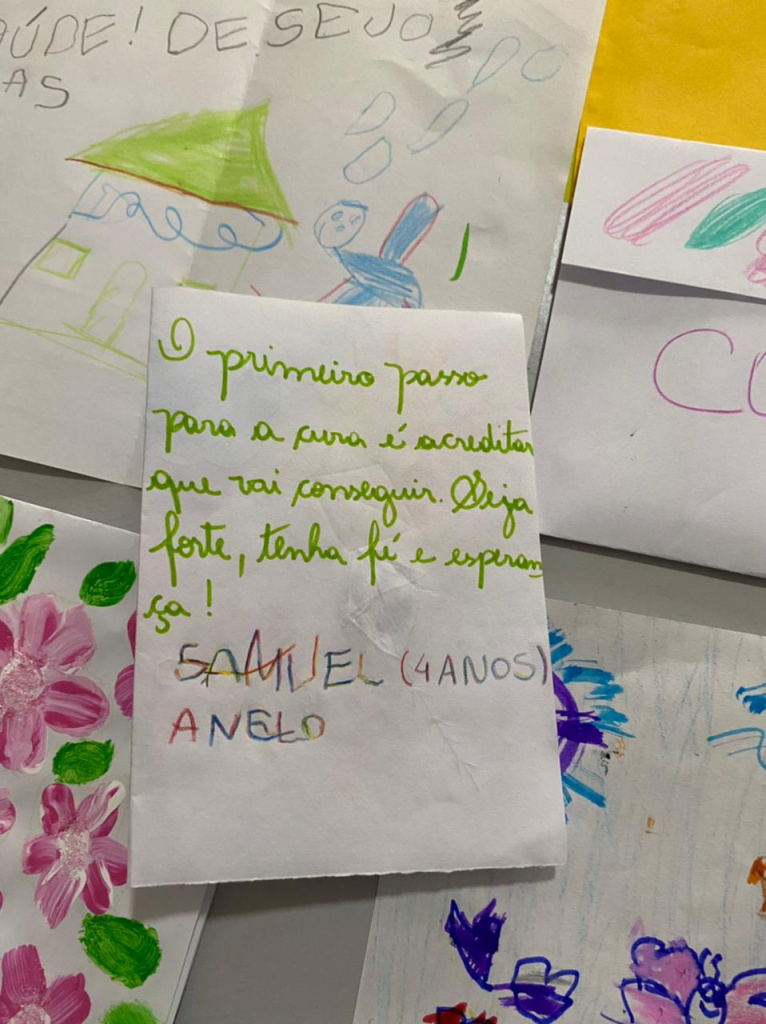 AÚDE! DESEJO
AS
CO
O primeiro passo
para a cura é acreditar
que vai conseguir. Seja
forte, tenha fé e esperan
ça!
SAMUEL (4 ANOS)
ANELO